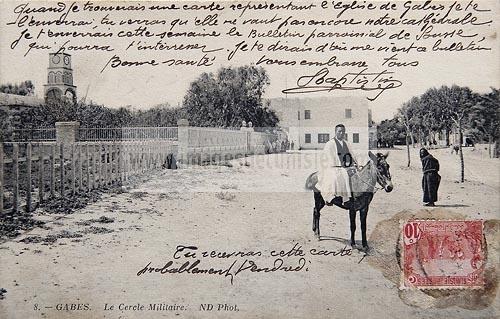 Quand je trouverais une carte représentant l'Eglise de Gabès je te
l'enverrai, tu verras qu'elle ne vaut pas encore notre cathédrale
Je t'enverrais cette semaine le Bulletin paroissial de Sousse,
qui pourra t'intéresser. Je te dirai d'où me vient ce bulletin
Bonne santé. Vous embrasse tous
Baptistin
Tu recevras cette carte
probablement Vendredi.
8. - GABÈS. Le Cercle Militaire. ND Phot.
10